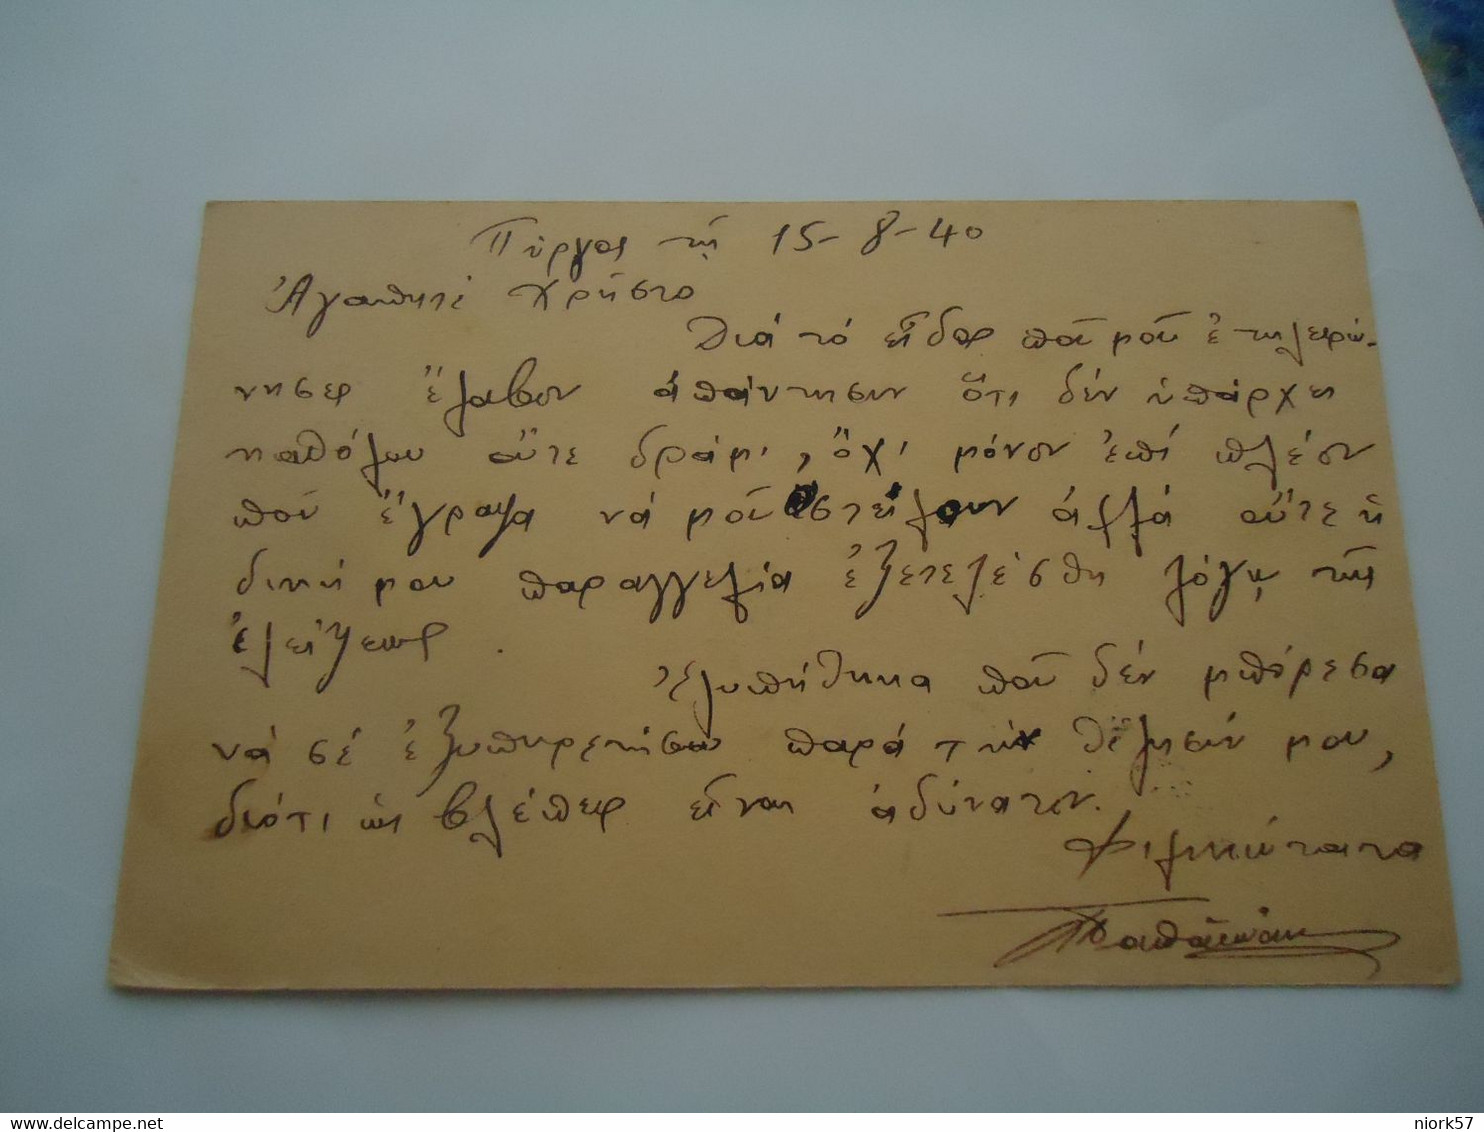 Πύργος τῇ 15-8-40
Ἀγαπητέ Χρῆστο
Διά τό εἶδος ποῦ μοῦ ἐτηλεφώ-
νησες ἔλαβον ἀπάντησιν ὅτι δέν ὑπάρχει
καθόλου οὔτε δράμι, ὄχι μόνον ἐπί πλέον
ποῦ ἔγραψα νά μοῦ στείλουν ἀλλά οὔτε ἡ
δική μου παραγγελία ἐξετελέσθη λόγῳ τῆς
ἐλείψεως.
Ἐλυπήθηκα ποῦ δέν μπόρεσα
νά σέ ἐξυπηρετήσω παρά τήν θέλησίν μου,
διότι ὡς βλέπεις εἶναι ἀδύνατον.
Φιλικώτατα
niork57